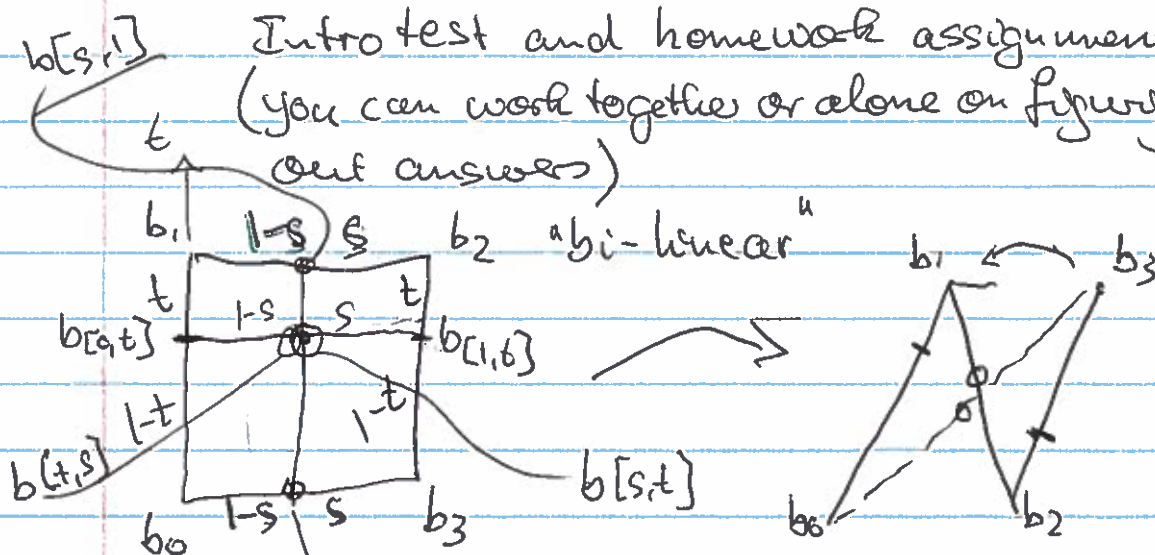 Intro test and homework assignmen
(you can work together or alone on figuring
out answers)
b[s,1]
t
b1 1-s s b2 "bi-linear"
b1 b3
t 1-s s t
b[0,t] b[1,t]
1-t 1-t
b(t,s] b[s,t]
1-s s
b0 b3
b0 b2